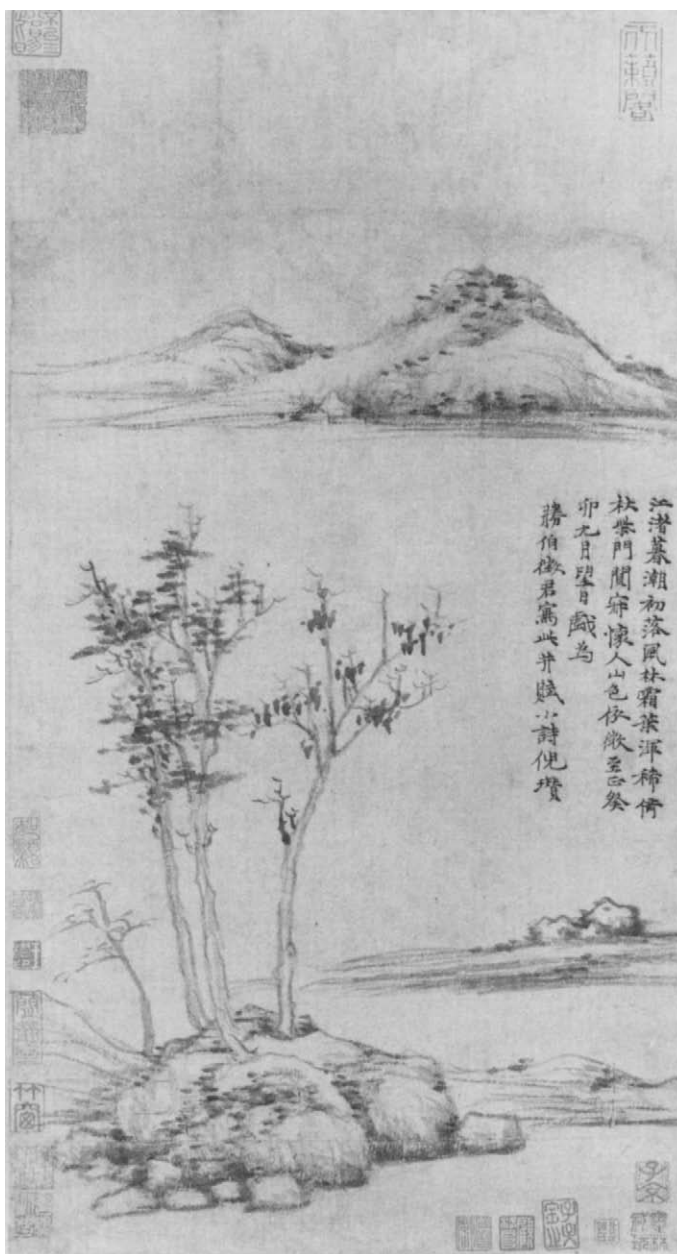 天籟閣
江渚暮潮初落風林霜葉渾稀倚
杖柴門閴寂懷人山色依微至正癸
卯九月望日戲為
勝伯徵君寫此并賦小詩倪瓚
竹窗
子京